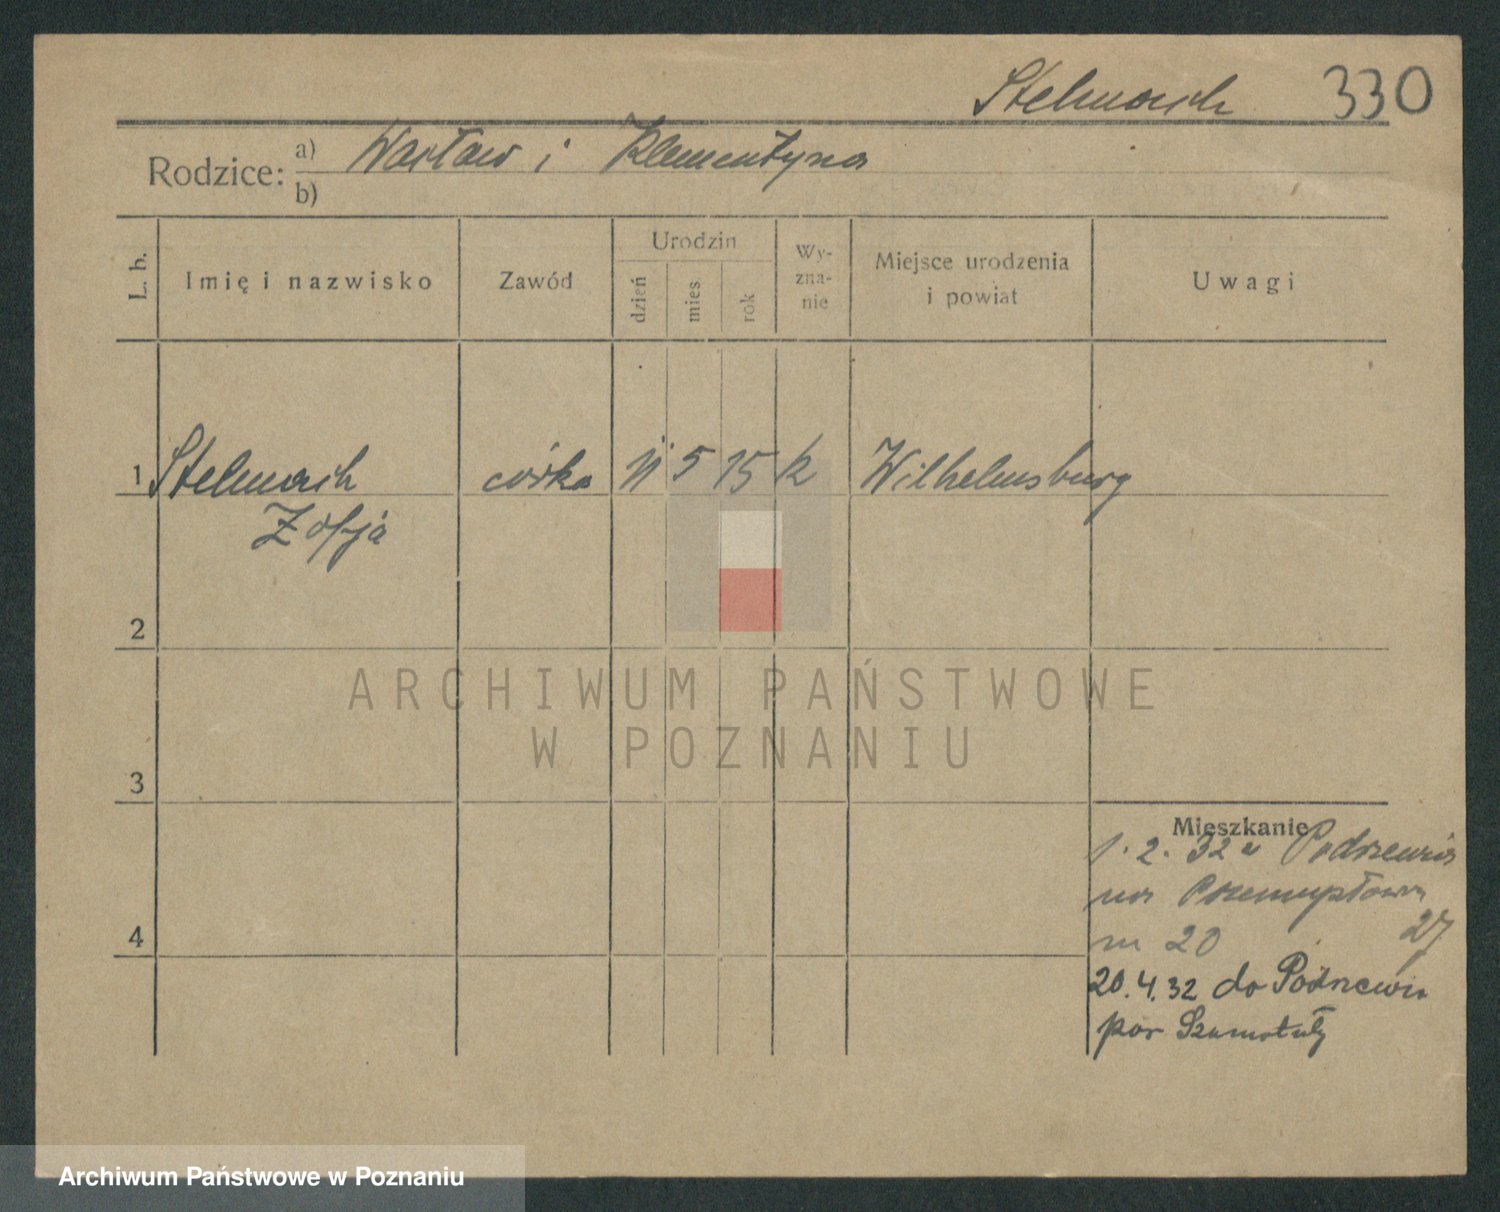 Stelmach 330
Rodzice: a) Wacław i Klementyna
b)
L. b.
Imię i nazwisko
Zawód
Urodzin
dzień
mies.
rok
Wy-
zna-
nie
Miejsce urodzenia
i powiat
Uwagi
1 Stelmach córka 11 5 15 k Wilhelmsburg
Zofja
2
ARCHIWUM PAŃSTWOWE
W POZNANIU
3
Mieszkanie
1.2.32 z Podrzewia
na Przemysłową
4
nr 20 27
20.4.32 do Podrzewia
pow Szamotuły
Archiwum Państwowe w Poznaniu